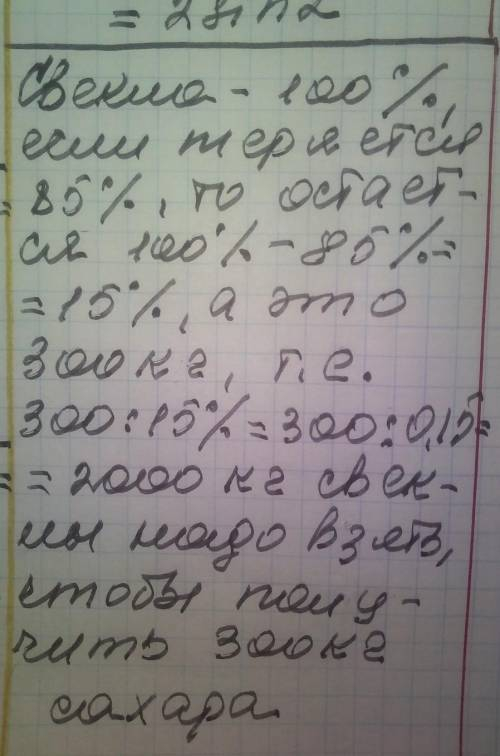 Свекла - 100%,
если теряется
85%, то остает-
ся 100% - 85% =
= 15%, а это
300 кг, т.е.
300 : 15% = 300 : 0,15 =
= 2000 кг свек-
лы надо взять,
чтобы полу-
чить 300 кг
сахара